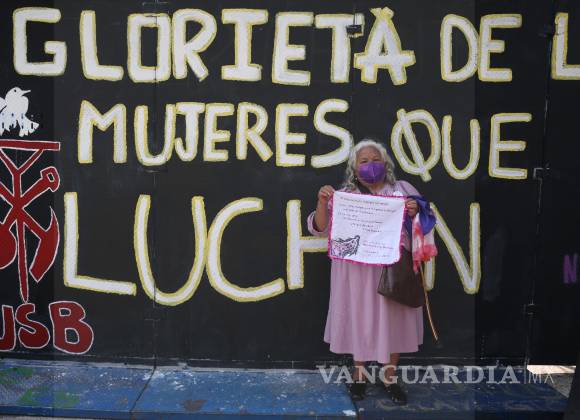 GLORIETA DE L
MUJERES QUE
LUCHAN
USB
VANGUARDIA MX